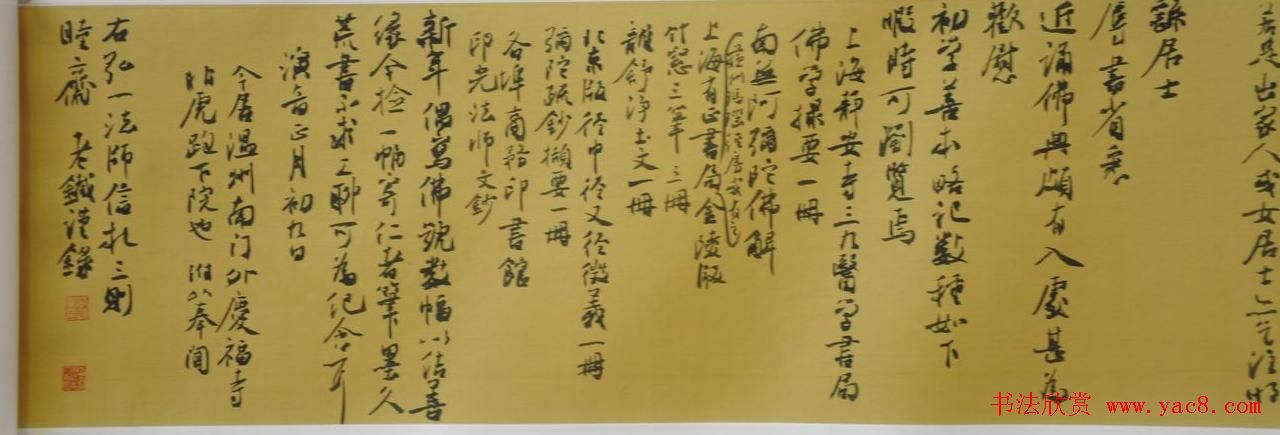 若是出家人或女居士亦乞注明
居士
書省悉
近誦佛典頗有入處甚為
歡慰
初學善本略記數種如下
暇時可瀏覽焉
上海靜安寺三九醫學書局
佛學撮要一冊
南無阿彌陀佛解
上海有正書局金陵版
竹窓三筆三冊
龍舒淨土文一冊
北京版徑中徑又徑徵義一冊
彌陀疏鈔擷要一冊
各埠商務印書館
印光法師文鈔
新年偶寫佛號數幅以結善
緣今檢一幅寄仁者筆墨久
荒書不求工聊可為紀念耳
演音正月初九日
今居溫州南门外慶福寺
虎跑下院也附以奉聞
右弘一法師信札三則
睦齋老鐵謹錄
书法欣赏 www.yac8.com